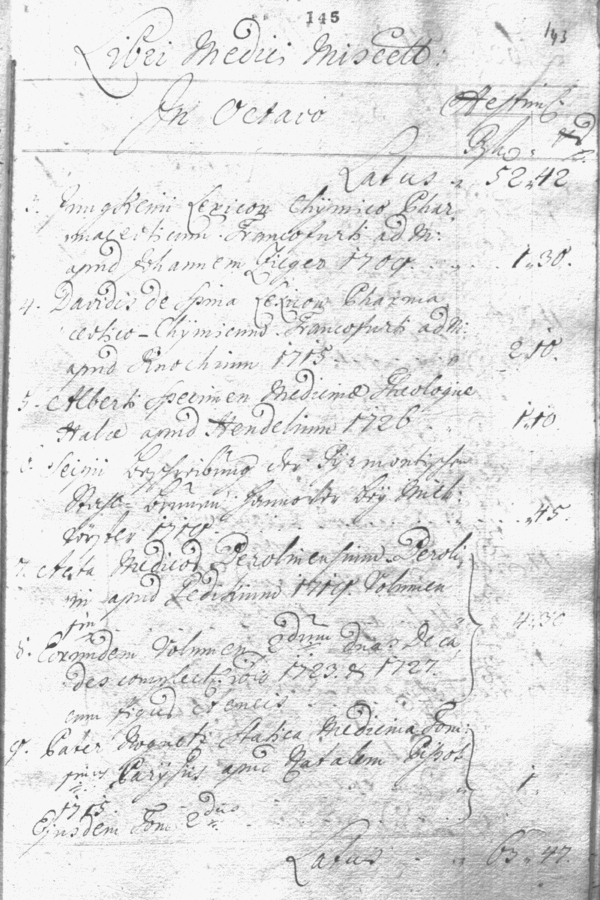 145
143
Libri Medici Miscell:
In Octavo
Aestim
Latus 52 42
3. Jungkenii Lexicon Chymico Phar
maceuticum. Francofurti ad M:
apud Johannem 1709. 1. 30.
4. Davidis de Spina Lexicon Pharma
ceutico-Chymicum. Francofurti ad M:
apud Knochium 1715 2 10.
5. Alberti Specimen Medicinae Theologicae
Halae apud Hendelium 1726 1 10
6. Seipii Beschreibung der Pyrmontischen
Stahl-Brunnen. Hannover bey
förster 1719. 45.
7. Acta Medicor Berolinensium Beroli
ni apud 1719. Volumen
4. 30
8. Eorundem Volumen 2dum duas Deca
des complect: 1723. & 1727.
cum figuris
9. Pater Statica Medicina Tom:
primus Parisiis apud Natalem Pissot
1.
1715.
Ejusdem Tom 2dus
Latus 63. 47.